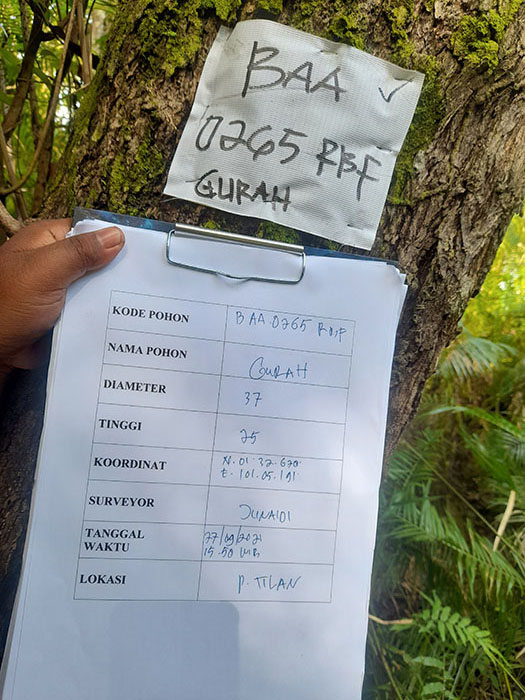 BAA ✓
0265 RBF
GURAH
KODE POHON BAA.0265 RBF
NAMA POHON GURAH
DIAMETER 37
TINGGI 25
KOORDINAT N.01.32.620
E.101.05.191
SURVEYOR JUNAIDI
TANGGAL 27/09/2021
WAKTU 15.50 WIB
LOKASI P. TILAN